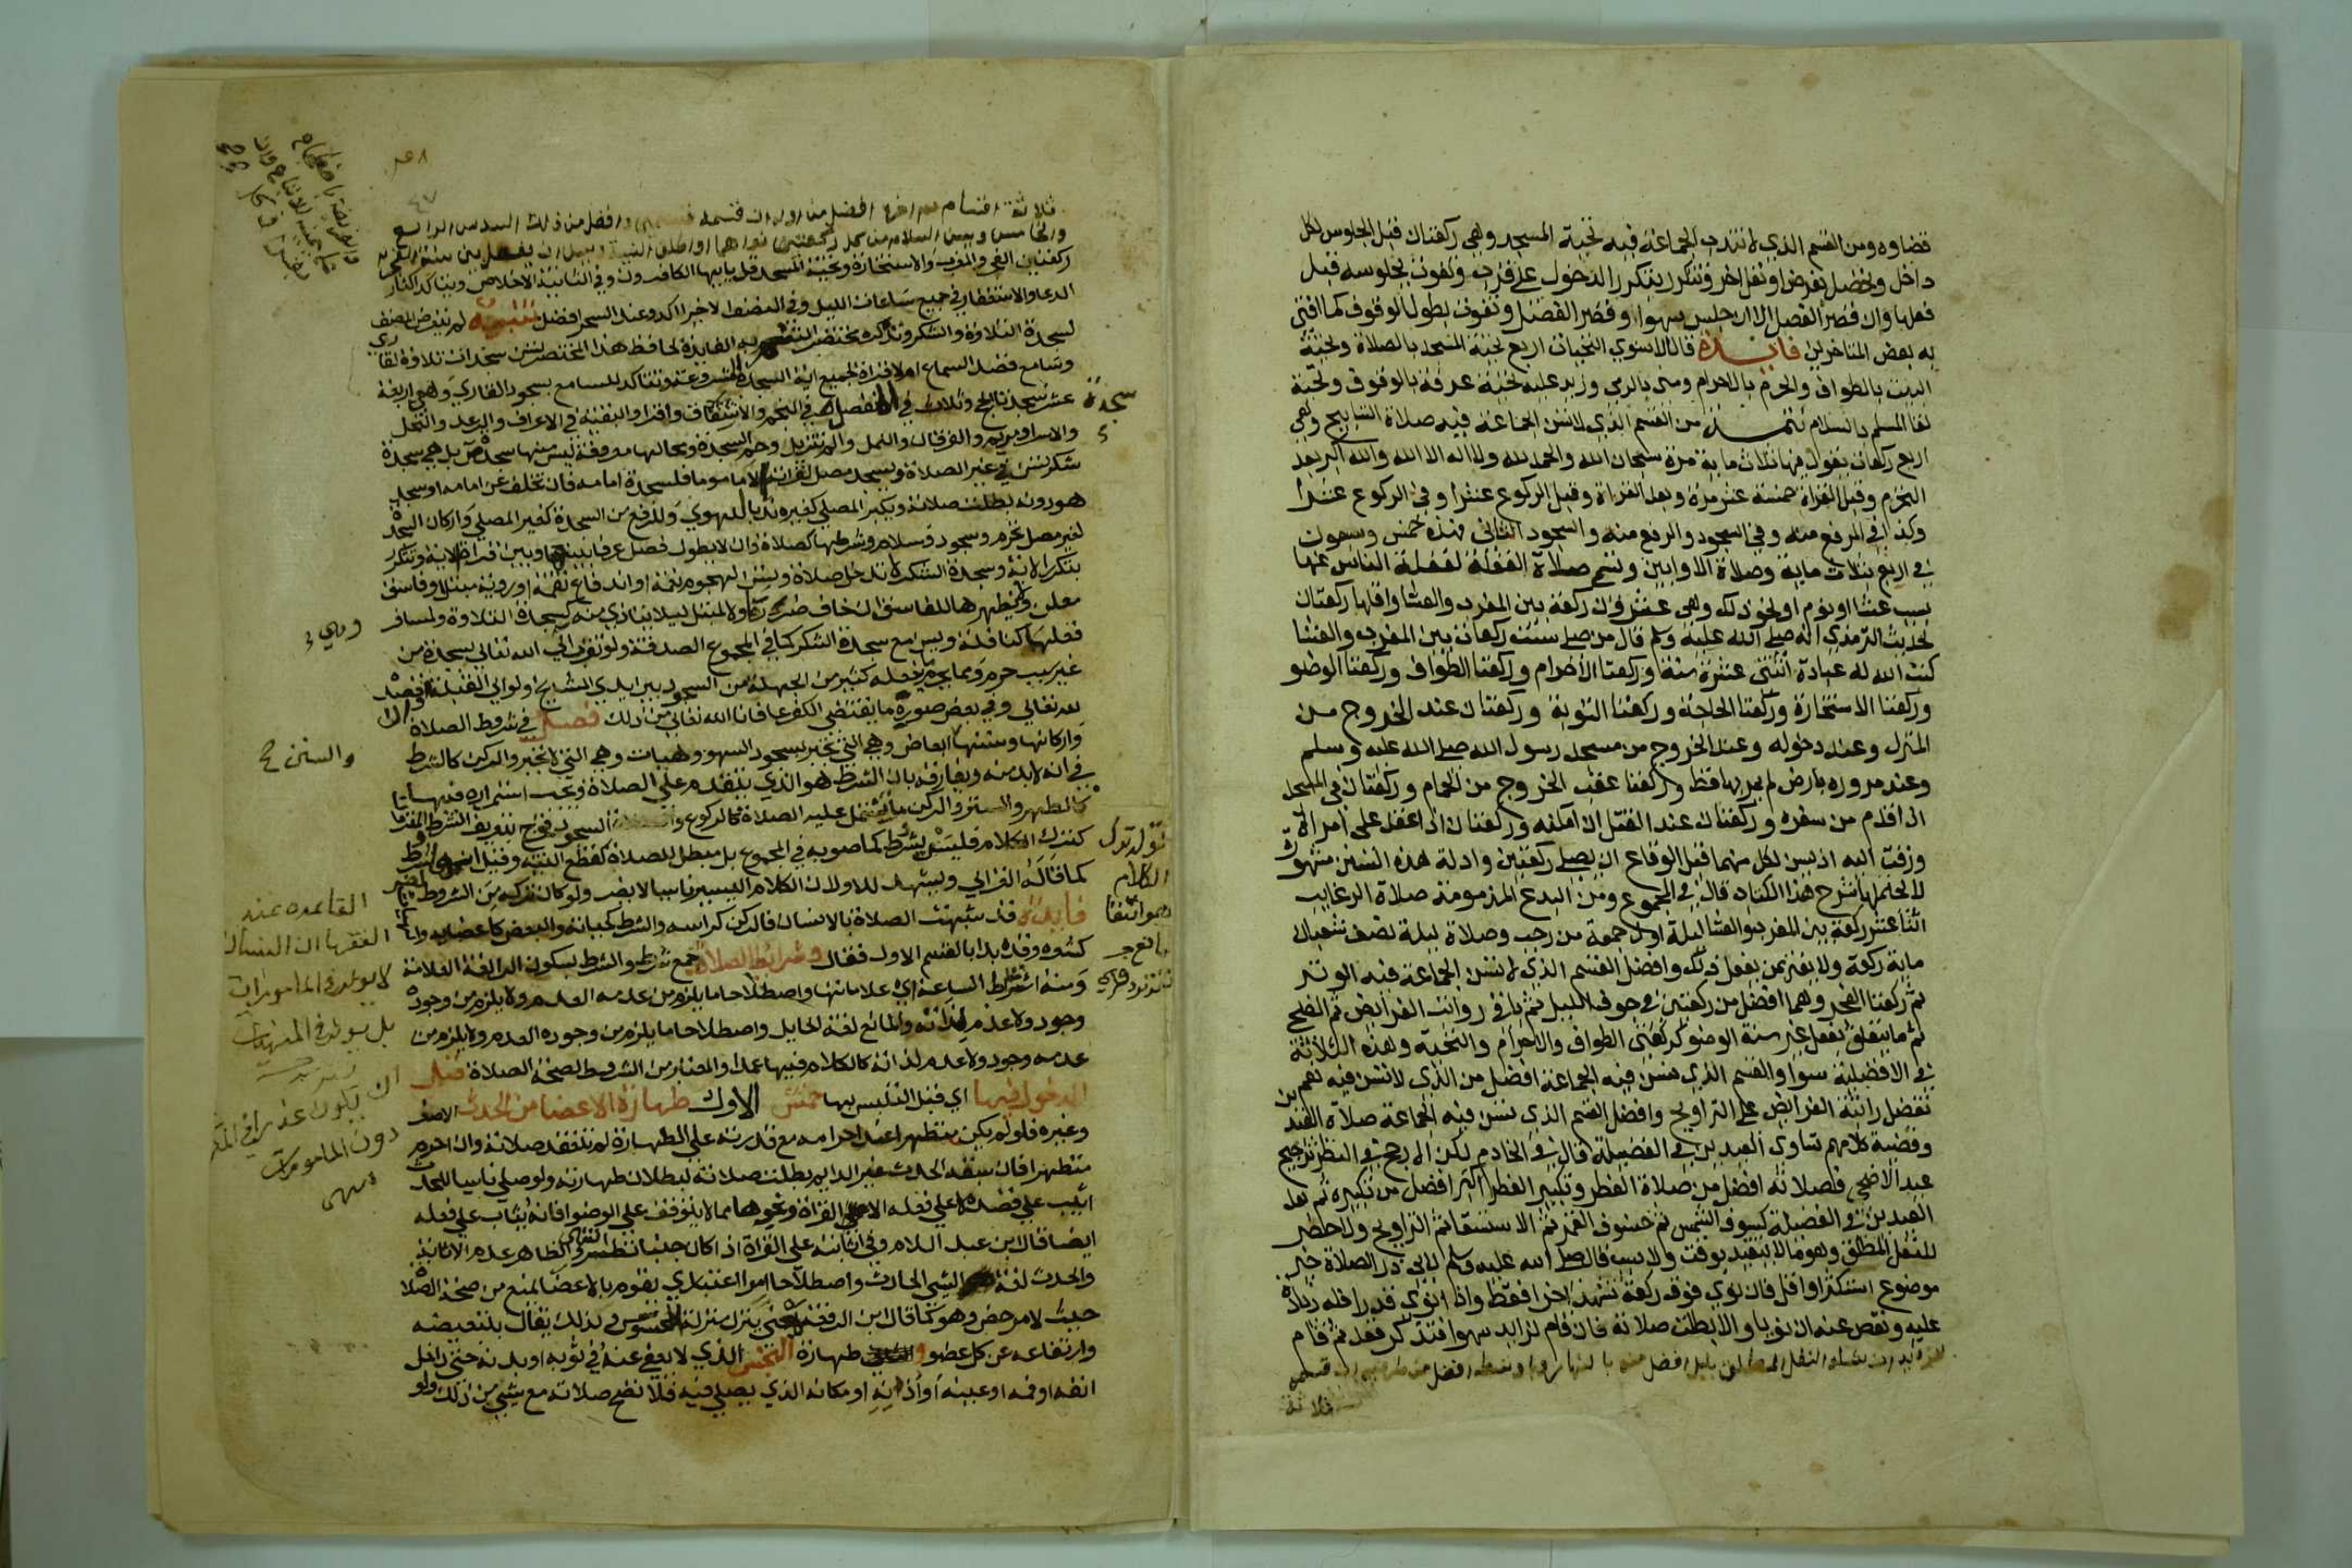 قضاوه ومن القسم الذي لا تندب الجماعة فيه تحية المسجد وهي ركعتان قبل الجلوس لكل
داخل وتحصل بفرض او نفل اخر وتتكرر بتكرر الدخول على قرب وتفوت بجلوسه قبل
فعلها وان قصر الفصل الا ان جلس سهوا وقصر الفصل وتفوت بطول الوقوف كما افتى
به بعض المتاخرين فايدة قال الاسنوي التحيات اربع تحية المسجد بالصلاة وتحية
البيت بالطواف والحرم بالاحرام ومنى بالرمي وزيد عليه تحية عرفة بالوقوف وتحية
لقا المسلم بالسلام تتمة من القسم الذي لا تسن الجماعة فيه صلاة التسابيح وهي
اربع ركعات يقول فيها ثلاث ماية مرة سبحان الله والحمد لله ولا اله الا الله والله اكبر بعد
التحرم وقبل القراة خمسة عشر مرة وبعد القراة وقبل الركوع عشرا وفي الركوع عشرا
وكذا في الرفع منه وفي السجود والرفع منه والسجود الثاني فهذه خمس وسبعون
في اربع بثلاث ماية وصلاة الاوابين وتسمى صلاة الغفلة لغفلة الناس عنها
بسبب عشا او نوم او نحو ذلك وهي عشرون ركعة بين المغرب والعشا واقلها ركعتان
لحديث الترمذي انه صلى الله عليه وسلم قال من صلى ست ركعات بين المغرب والعشا
كتب الله له عبادة اثنتي عشرة سنة وركعتا الاحرام وركعتا الطواف وركعتا الوضو
وركعتا الاستخارة وركعتا الحاجة وركعتا التوبة وركعتان عند الخروج من
المنزل وعند دخوله وعند الخروج من مسجد رسول الله صلى الله عليه وسلم
وعند مروره بارض لم يمر بها قط وركعتا عقب الخروج من الحمام وركعتان في المسجد
اذا قدم من سفره وركعتان عند القتل ان امكنه وركعتان اذا عقد على امراة
وزفت اليه اذ يسن لكل منهما قبل الوقاع ان يصلي ركعتين وادلة هذه السنن مشهورة
لا يحتملها شرح هذا الكتاب قال في المجموع ومن البدع المذمومة صلاة الرغايب
اثنا عشر ركعة بين المغرب والعشا ليلة اول جمعة من رجب وصلاة ليلة نصف شعبان
ماية ركعة ولا يغتر بمن يفعل ذلك وافضل القسم الذي لا تسن الجماعة فيه الوتر
ثم ركعتا الفجر وهما افضل من ركعتين في جوف الليل ثم باقي رواتب الفرائض ثم الضحى
ثم ما يتعلق بفعل غير سنة الوضو كركعتي الطواف والاحرام والتحية وهذه الثلاثة
في الافضلية سوا والقسم الذي تسن فيه الجماعة افضل من الذي لا تسن فيه نعم
تفضل راتبة الفرايض على التراويح وافضل القسم الذي تسن فيه الجماعة صلاة العيدين
وقضية كلامهم تساوي العيدين في الفضيلة قال في الخادم لكن الارجح في النظر ترجيح
عيد الاضحى فصلاته افضل من صلاة الفطر وتكبير الفطر افضل من تكبيره ثم بعد
العيدين في الفضيلة كسوف الشمس ثم خسوف القمر ثم الاستسقا ثم التراويح ولا حصر
للنفل المطلق وهو ما لا يتقيد بوقت ولا سبب قال صلى الله عليه وسلم لابي ذر الصلاة خير
موضوع استكثر او اقل فان نوى فوق ركعة تشهد اخرا فقط واذا نوى قدرا فله زيادة
عليه ونقص عنه ان نويا والا بطلت صلاته فان قام لزايد سهوا فتذكر قعد ثم قام
للزيادة ان شاء والنفل المطلق بليل افضل منه بالنهار واوسطه افضل من طرفيه ان قسمه
ثلاثة
ثلاثة اقسام ثم اخره افضل من اوله ان قسمه قسمين وافضل من ذلك السدس الرابع
والخامس ويسن السلام من كل ركعتين نواهما او اطلق النية ويسن ان يفصل بين سنة الفجر
ركعتين الفجر والمغرب والاستخارة وتحية المسجد قل يا ايها الكافرون وفي الثانية الاخلاص ويتاكد اكثار
الدعا والاستغفار في جميع ساعات الليل وفي النصف الاخير اكد وعند السحر افضل تنبيه لم يتعرض المصنف
لسجدة التلاوة والشكر ونذكره مختصرا لتتم به الفايدة لحافظ هذا المختصر تسن سجدات تلاوة لقاري
وسامع قصد السماع ام لا قراة لجميع اية السجدة مشروعة وتتاكد للسامع بسجود القاري وهي اربعة
عشر سجدتا الحج وثلاث في المفصل في النجم والانشقاق واقرا والبقية في الاعراف والرعد والنحل
سجدة
والاسرا ومريم والفرقان والنمل والم تنزيل وحم السجدة ومحالها معروفة ليس منها سجدة ص بل هي سجدة
شكر تسن في غير الصلاة ويسجد مصل لقراته الا ماموما فلسجدة امامه فان تخلف عن امامه او سجد
هو دونه بطلت صلاته ويكبر المصلي كغيره ندبا للهوي وللرفع من السجدة كغير المصلي واركان السجدة
لغير مصل تحرم وسجود وسلام وشرطها كصلاة وان لا يطول فصل عرفا بينها وبين قراة الاية وتتكرر
بتكرر الاية وسجدة الشكر لا تدخل صلاة وتسن لهجوم نعمة او اندفاع نقمة او روية مبتلى او فاسق
معلن ويظهرها للفاسق ان خاف ضرره ولا لمبتلى ليلا يتاذى منه كسجدة التلاوة ولمسافر
وهي
فعلها كنافلة ويسن مع سجدة الشكر كما في المجموع الصدقة ولو تقرب الى الله تعالى بسجدة من
غير سبب حرم ومما يحرم ما يفعله كثير من الجهلة من السجود بين ايدي المشايخ ولو الى القبلة او قصد
لله تعالى وفي بعض صوره ما يقتضي الكفر عافانا الله تعالى من ذلك فصل في شروط الصلاة
واركانها وسننها ابعاض وهي التي تجبر بسجود السهو وهيات وهي التي لا تجبر والركن كالشرط
والسنن
في انه لابد منه ويفارقه بان الشرط هو الذي يتقدم على الصلاة ويجب استمراره فيها
كالطهر والستر والركن ما تشتمل عليه الصلاة كالركوع والسجود فخرج بتعريف الشرط
كترك الكلام فليس بشرط كما صوبه في المجموع بل مبطل للصلاة كقطع النية وقيل انه شرط
كما قاله الغزالي ويشهد للاول ان الكلام اليسير ناسيا لا يضر ولو كان تركه من الشروط لضر
فايدة قد شبهت الصلاة بالانسان فالركن كراسه والشرط كحياته والبعض كاعضايه
كشعره وقد بدا بالقسم الاول فقال وشرايط الصلاة جمع شرط والشرط بسكون الرا لغة العلامة
ومنه اشراط الساعة اي علاماتها واصطلاحا ما يلزم من عدمه العدم ولا يلزم من وجوده
وجود ولا عدم لذاته والمانع لغة الحايل واصطلاحا ما يلزم من وجوده العدم ولا يلزم من
عدمه وجود ولا عدم لذاته كالكلام فيها عمدا والمعتبر من الشروط لصحة الصلاة قبل
الدخول فيها اي قبل التلبس بها خمس الاول طهارة الاعضا من الحدث الاصغر
وغيره فلو لم يكن متطهرا عند احرامه مع قدرته على الطهارة لم تنعقد صلاته وان احرم
متطهرا فان سبقه الحدث غير الدايم بطلت صلاته لبطلان طهارته ولو صلى ناسيا للحدث
اثيب على قصده لا على فعله الا القراة ونحوها مما لا يتوقف على الوضو فانه يثاب على فعله
ايضا قال ابن عبد السلام وفي اثابته على القراة اذا كان جنبا نظر والظاهر عدم الاثابة
والحدث لغة الشي الحادث واصطلاحا امر اعتباري يقوم بالاعضا يمنع من صحة الصلاة
حيث لا مرخص وهو كما قال ابن الرفعة معنى ينزل منزلة المحسوس ولذلك يقال بتبعيضه
وارتفاعه عن كل عضو و طهارة النجس الذي لا يعفى عنه في ثوبه او بدنه حتى داخل
انفه او فمه او عينه او اذنه او مكانه الذي يصلي فيه فلا تصح صلاته مع شي من ذلك ولو
القاعده عند
الفقها ان النسيان
لا يوثر في المامورات
بل يوثر في المنهيات
ان يكون عذرا في
دون المامورات
انتهى